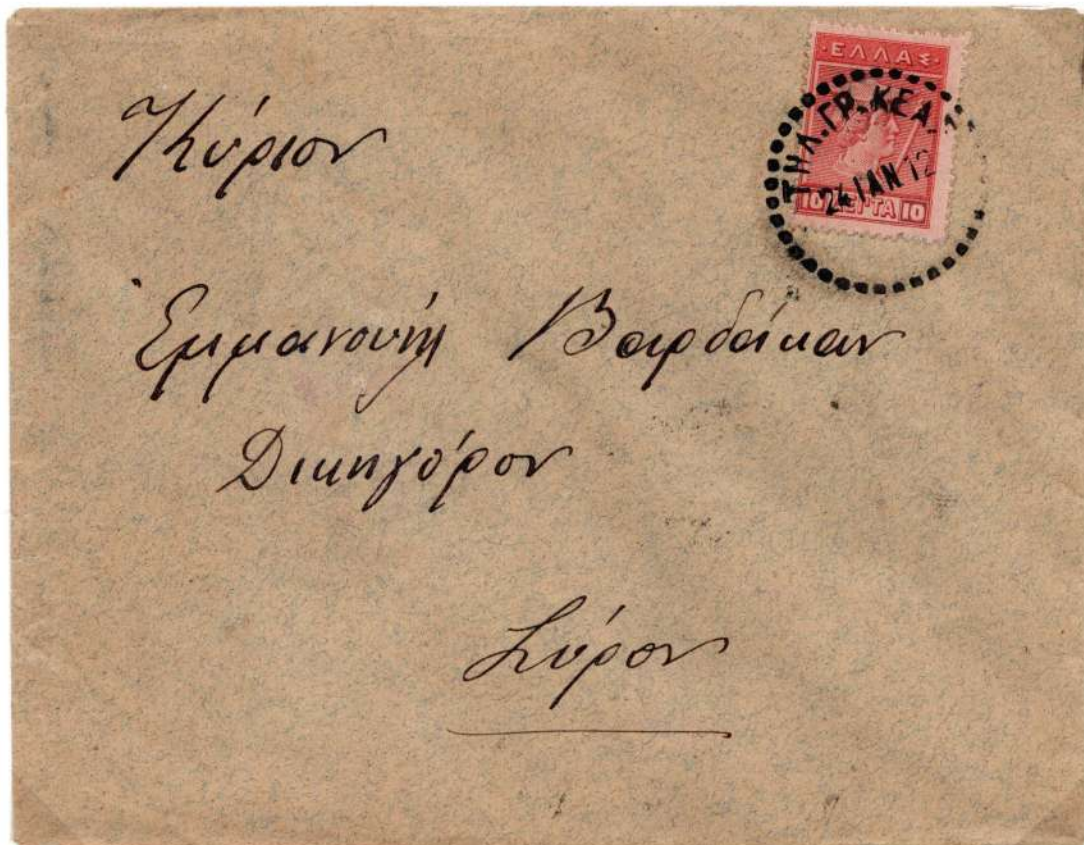 ·ΕΛΛΑΣ·
ΤΗΛ.ΓΡ.ΚΕΑ.
24 ΙΑΝ 12
10 ΛΕΠΤΑ 10
Κύριον
Ἐμμανουήλ Βαρδάκαν
Δικηγόρον
Σύρον